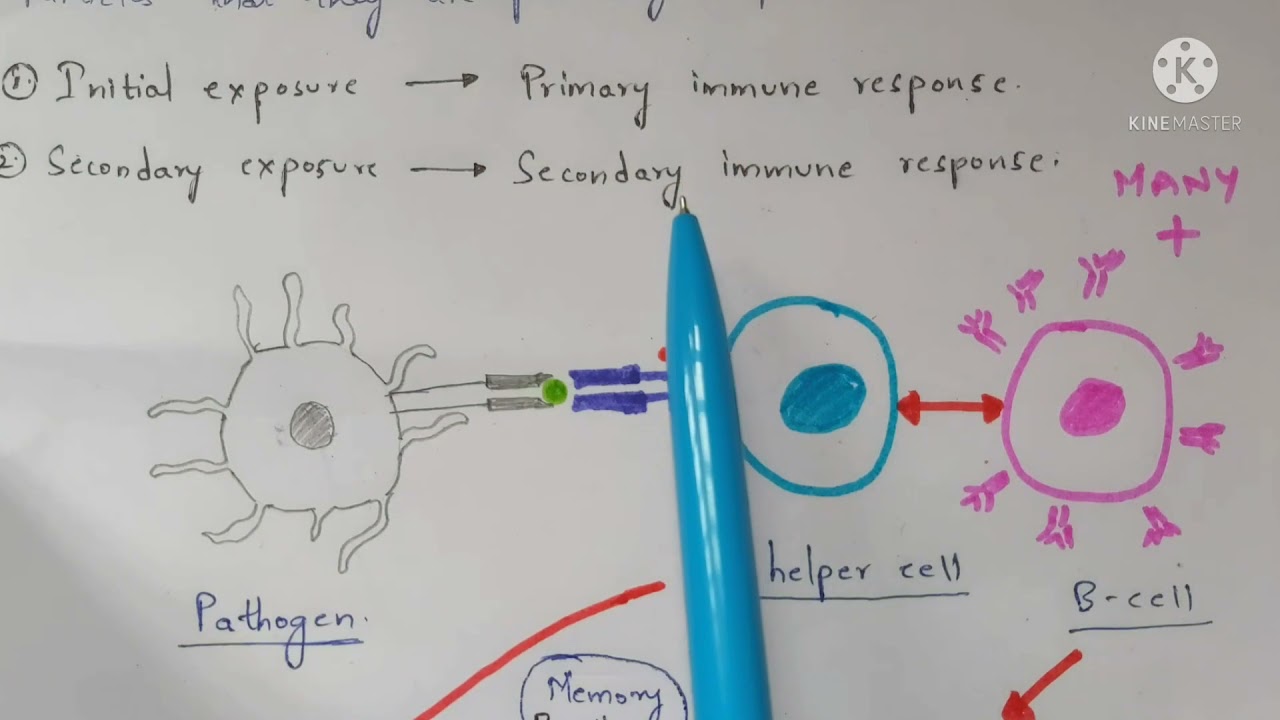 ① Initial exposure → Primary immune response.
② Secondary exposure → Secondary immune response.
KINEMASTER
MANY
+
helper cell
B-cell
Pathogen.
Memory